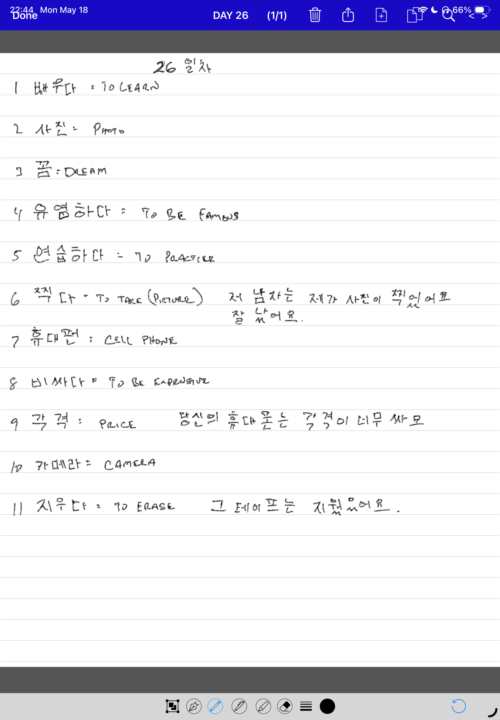 22:44 Mon May 18
66%
Done
DAY 26 (1/1)
26 일차
1 배우다 = TO LEARN
2 사진 = PHOTO
3 꿈 = DREAM
4 유염하다 = TO BE FAMOUS
5 연습하다 = TO PRACTICE
6 찍다 = TO TAKE (PICTURE) 저 남자는 제가 사진이 찍었어요
잘 났어요.
7 휴대펀 : CELL PHONE
8 비싸다 = TO BE EXPENSIVE
9 각격 : PRICE 당신의 휴대폰는 각격이 너무 싸요
10 카메라 = CAMERA
11 지우다 = TO ERASE 그 테이프는 지웠있어요.